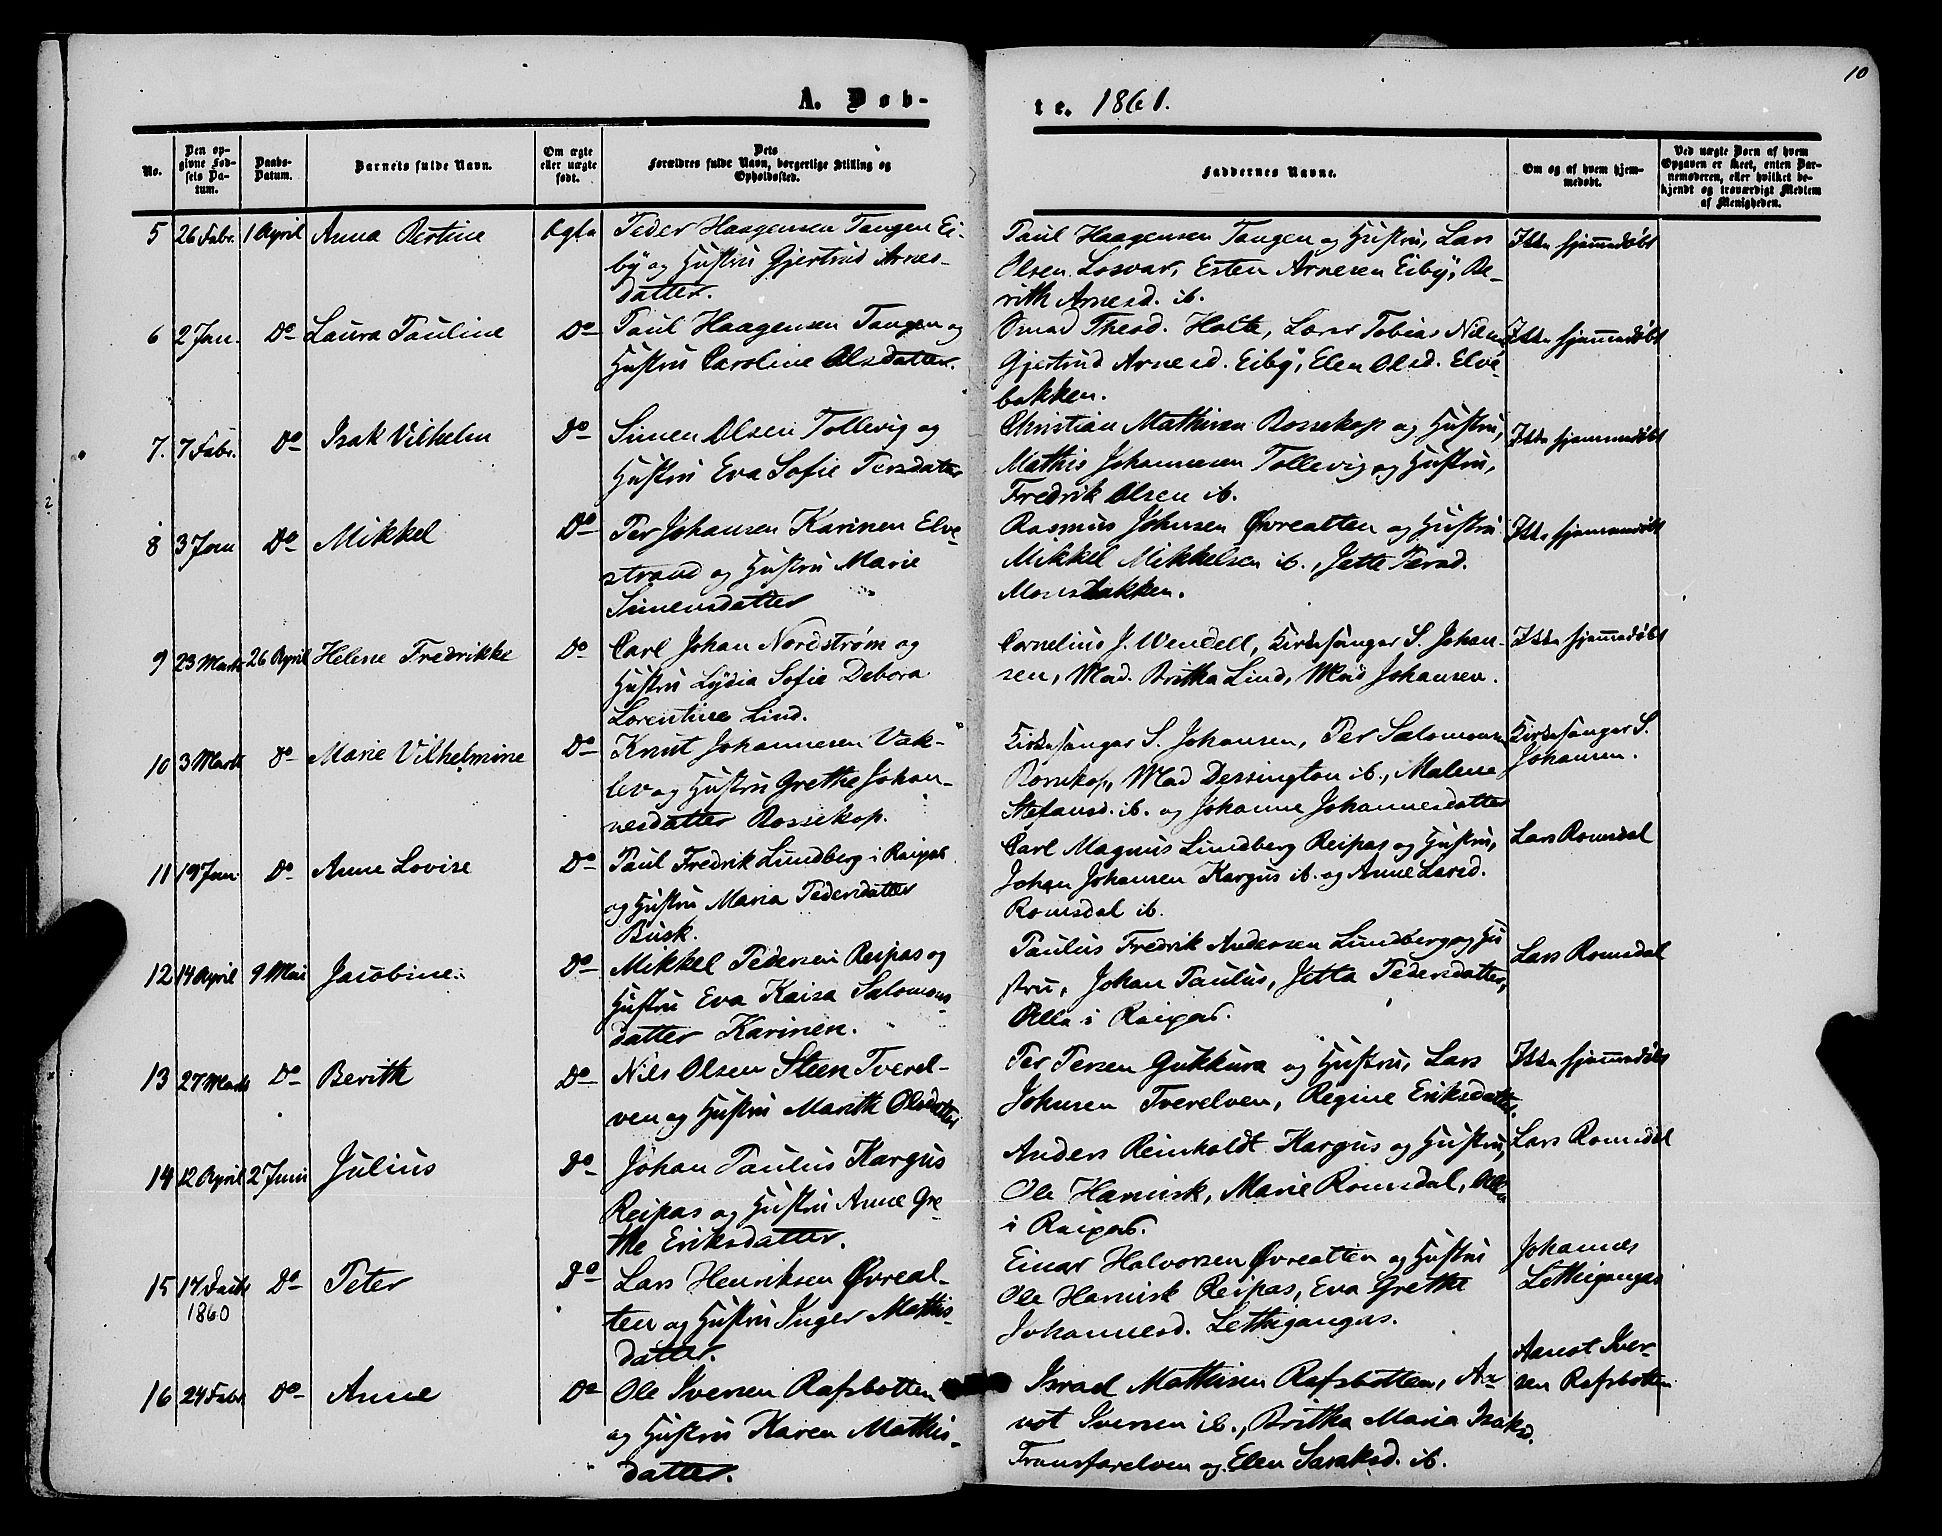 10
A. Døb-
te. 1861.
No.
Den op-
givne Fød-
sels Da-
tum.
Daabs-
Datum.
Barnets fulde Navn.
Om ægte
eller uægte
født.
Dets
Forældres fulde Navn, borgerlige Stilling og
Opholdssted.
Faddernes Navne.
Om og af hvem hjem-
medøbt.
Ved uægte Børn af hvem
Opgaven er skeet, enten Bar-
nemoderen, eller hvilket be-
kjendt og troværdigt Medlem
af Menigheden.
5 26 Febr. 1 April Anna Bertine Ægte Peder Haagensen Tangen Ei-
by og Hustru Gjertrud Arnes-
datter.
Paul Haagensen Tangen og Hustru, Lars
Olsen Losvar, Esten Arnesen Eiby, Be-
rith Arnesd. ib.
Ikke hjemmedøbt
6 2 Jan. Do Laura Pauline Do Paul Haagensen Tangen og
Hustru Caroline Olsdatter.
Thesd. Holte, Lars Tobias Nilsen
Gjertrud Arnesd. Eiby, Elen Olsd. Elve-
bakken.
Ikke hjemmedøbt
7. 7 Febr. Do Isak Vilhelm Do Simen Olsen Tollevig og
Hustru Eva Sofie Persdatter
Christian Mathisen Bossekop og Hustru,
Mathis Johannesen Tollevig og Hustru,
Fredrik Olsen ib.
Ikke hjemmedøbt
8 3 Jan Do Mikkel Do Per Johansen Karinen Elve-
strand og Hustru Marie
Simensdatter
Rasmus Johnsen Øvrealten og Hustru
Mikkel Mikkelsen ib., Jette Persd.
Monsbakken.
Ikke hjemmedøbt
9 23 Marts 26 April Helene Fredrikke Do Carl Johan Nordstrøm og
Hustru Lydia Sofie Debora
Lorentine Lind.
Cornelius J. Wendell, Kirkesanger S. Johan-
sen, Mad. Britha Lind, Mad Johansen.
Ikke hjemmedøbt
10 3 Marts Do Marie Vilhelmine Do Knut Johannesen Vak-
lev og Hustru Grethe Johan-
nesdatter Bossekop.
Kirkesanger S. Johansen, Per Salomonsen
Bossekop, Mad Dessington ib., Malene
Stefansd. ib. og Johanne Johannesdatter
Kirkesanger S.
Johansen.
11 19 Jan. Do Anne Lovise Do Paul Fredrik Lundberg i Raipas
og Hustru Maria Pedersdatter
Busk.
Carl Magnus Lundberg Reipas og Hustru,
Johan Johansen Kargus ib. og Anne Larsd.
Romsdal ib.
Lars Romsdal
12 14 April 9 Mai Jacobine. Do Mikkel Pedersen Reipas og
Hustru Eva Kaisa Salomons-
datter Karinen.
Paulus Fredrik Andersen Lundberg og Hu
stru, Johan Paulus, Jetta Pedersdatter,
Alle i Raipas.
Lars Romsdal
13 27 Marts Do Berith Do Nils Olsen Steen Tverel-
ven og Hustru Marith Olsdatter
Per Persen Gukkura og Hustru, Lars
Johnsen Tverelven, Regine Eriksdatter.
Ikke hjemmedøbt
14 12 April 2 Juni Julius Do Johan Paulus Kargus
Reipas og Hustru Anne Gre-
the Eriksdatter.
Anders Reinholdt Kargus og Hustru,
Ole Harnisk, Marie Romsdal, Alle
i Raipas.
Lars Romsdal
15 17 Decbr
1860 Do Peter Do Lars Henriksen Øvreal-
ten og Hustru Inger Mathis-
datter.
Einar Halvorsen Øvrealten og Hustru
Ole Harnisk Reipas, Eva Grethe
Johannesd. Lethigangas.
Johannes
Lethigangas
16 24 Febr Do Anne Do Ole Iversen Rafsbotten
og Hustru Karen Mathis-
datter.
Israel Mathisen Rafsbotten, Ar-
vot Iversen ib., Britha Maria Isaksd.
Transfarelven og Elen Saraksd. ib.
Aanot Iver-
sen Rafsbotten